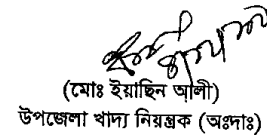 (মোঃ ইয়াছিন আলী)
উপজেলা খাদ্য নিয়ন্ত্রক (অঃদাঃ)